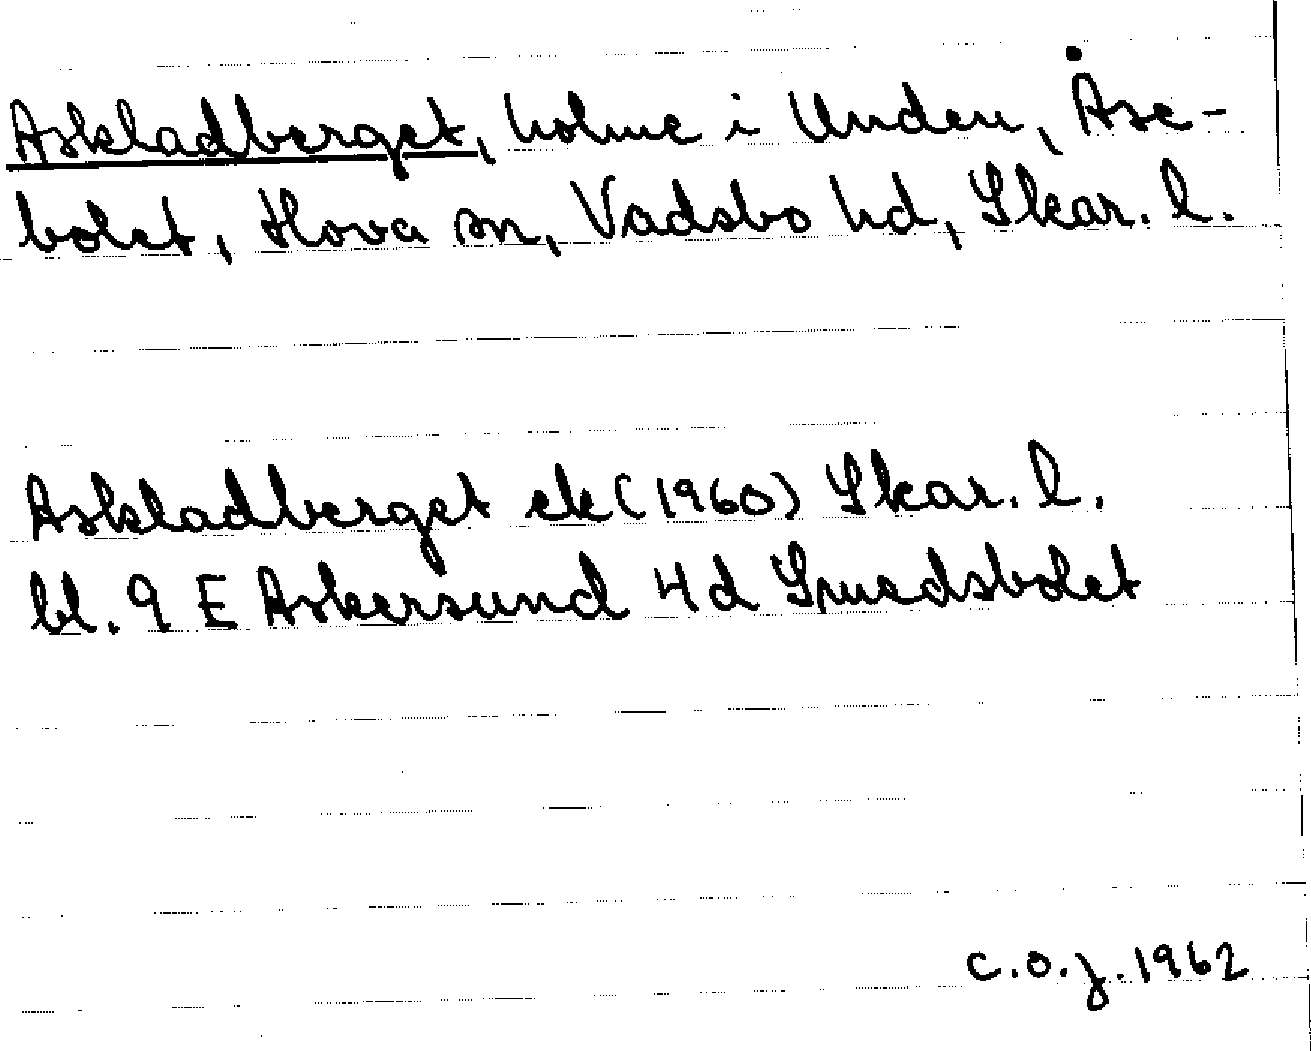 Askladberget, holme i Unden, Åse-
bolet, Hova sn, Vadsbo hd, Skar. l.
Askladberget ek (1960) Skar. l.
bl. 9 E Askersund 4d Sprsdsbolet
C.O.J. 1962